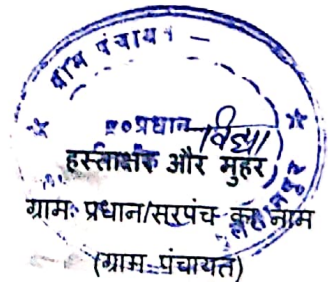 ग्राम पंचायत
प्रधान
विद्या
हस्ताक्षर और मुहर
ग्राम प्रधान/सरपंच का नाम
(ग्राम पंचायत)